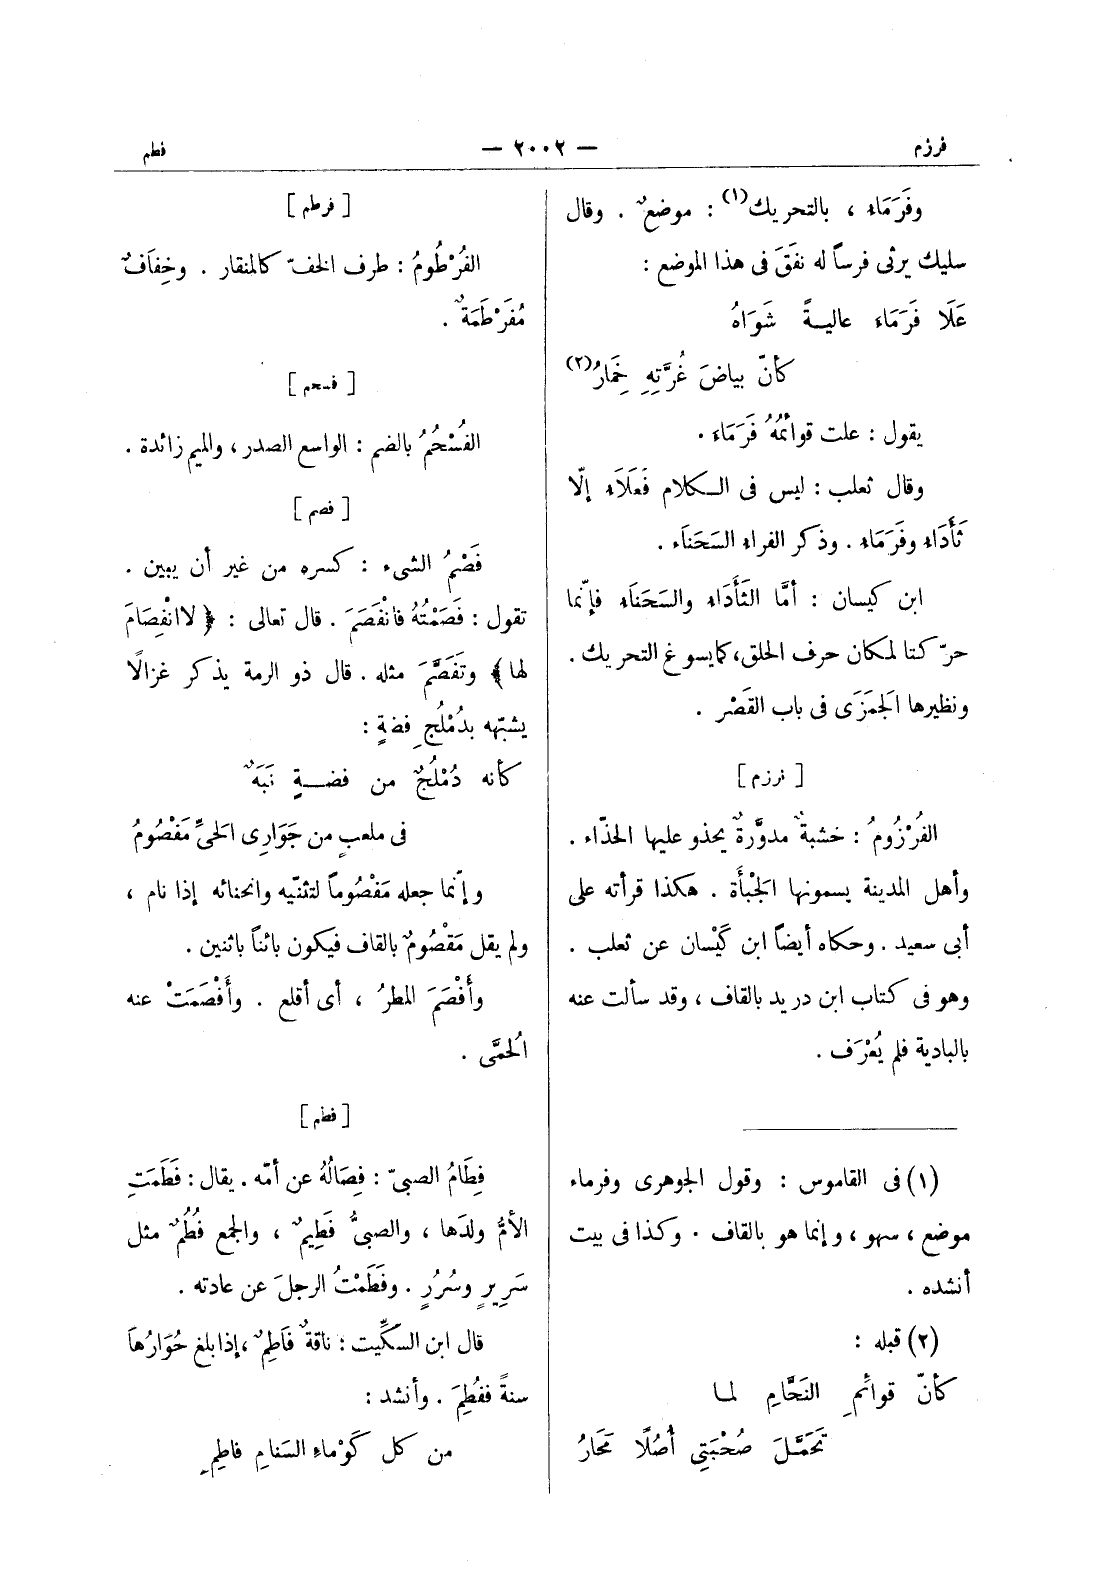 فرزم
— ٢٠٠٢ —
فطم
وفَرَمَاء ، بالتحريك(١) : موضعٌ . وقال
سليك يرثى فرساً له نفَقَ فى هذا الموضع :
عَلَا فَرَمَاءَ عاليــةً شَوَاهُ
كأنّ بياضَ غُرَّتِهِ خِمَارُ(٢)
يقول : علت قوائمُهُ فَرَمَاءَ .
وقال ثعلب : ليس فى الكلام فَعَلَاء إلّا
ثَأَدَاء وفَرَمَاء . وذكر الفراء السَحَنَاء .
ابن كيسان : أمَّا الثَأَدَاء والسَحَنَاء فإنّما
حرّكتا لمكان حرف الحلق، كما يسوغ التحريك .
ونظيرها الجَمَزَى فى باب القَصْر .
[ فرزم ]
الفُرْزُومُ : خشبةٌ مدوَّرةٌ يحذو عليها الحذّاء .
وأهل المدينة يسمونها الجَبْأَة . هكذا قرأته على
أبى سعيد . وحكاه أيضاً ابن كَيْسان عن ثعلب .
وهو فى كتاب ابن دريد بالقاف ، وقد سألت عنه
بالبادية فلم يُعْرَف .
(١) فى القاموس : وقول الجوهرى وفرماء
موضع ، سهو ، وإنما هو بالقاف . وكذا فى بيت
أنشده .
(٢) قبله :
كأنّ قوائمِ النَحَّامِ لما
تَحَمَّلَ صُحْبَتِي أُصُلًا مَحَارُ
[ فرطم ]
الفُرْطُومُ : طرف الخفّ كالمنقار . وخِفَافٌ
مُفَرْطَمَةٌ .
[ فسحم ]
الفُسْحُمُ بالضم : الواسع الصدر ، والميم زائدة .
[ فصم ]
فَصْمُ الشىء : كسره من غير أن يبين .
تقول : فَصَمْتُهُ فانْفَصَمَ . قال تعالى : ﴿ لاانْفِصَامَ
لها ﴾ وتَفَصَّمَ مثله . قال ذو الرمة يذكر غزالًا
يشبّهه بدُمْلُجِ فضةٍ :
كأنه دُمْلُجٌ من فضــةٍ نَبَهٌ
فى ملعبٍ من جَوَارِى الحَىِّ مَفْصُومُ
وإنّما جعله مَفْصُوماً لتثنّيه وانحنائه إذا نام ،
ولم يقل مَقْصُومٌ بالقاف فيكون بائناً باثنين .
وأَفْصَمَ المطرُ ، أى أقلع . وأَفْصَمَتْ عنه
الحُمَّى .
[ فطم ]
فِطَامُ الصبىّ : فِصَالُهُ عن أمّه . يقال : فَطَمَتِ
الأمُّ ولدَها ، والصبىُّ فَطِيمٌ ، والجمع فُطُمٌ مثل
سَرِيرٍ وسُرُرٍ . وفَطَمْتُ الرجلَ عن عادته .
قال ابن السكِّيت : ناقةٌ فَاطِمٌ ، إذا بلغ حُوَارُهَا
سنةً ففُطِمَ . وأنشد :
من كل كَوْماءِ السَنامِ فاطِمِ